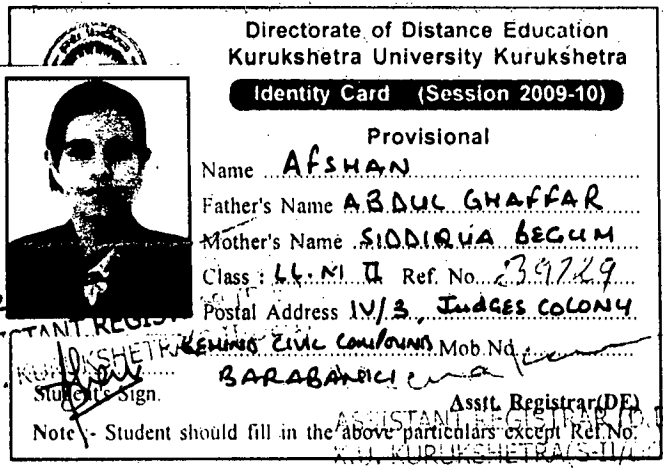 Directorate of Distance Education
Kurukshetra University Kurukshetra
Identity Card (Session 2009-10)
Provisional
Name AfSHAN
Father's Name ABDUL GHAFFAR
Mother's Name SIDDIQUA BEGUM
Class : LL.M II Ref. No. 39729
Postal Address IV/3, JUDGES COLONY
BEHIND CIVIL COMPOUND Mob.No.
BARABANKI
Student's Sign.
Asstt. Registrar(DE)
Note :- Student should fill in the above particulars except Ref.No.
ASSISTANT REGISTRAR
K.U. KURUKSHETRA